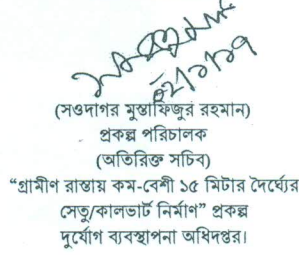 (সওদাগর মুস্তাফিজুর রহমান)
প্রকল্প পরিচালক
(অতিরিক্ত সচিব)
“গ্রামীণ রাস্তায় কম-বেশী ১৫ মিটার দৈর্ঘ্যের
সেতু/কালভার্ট নির্মাণ” প্রকল্প
দুর্যোগ ব্যবস্থাপনা অধিদপ্তর।